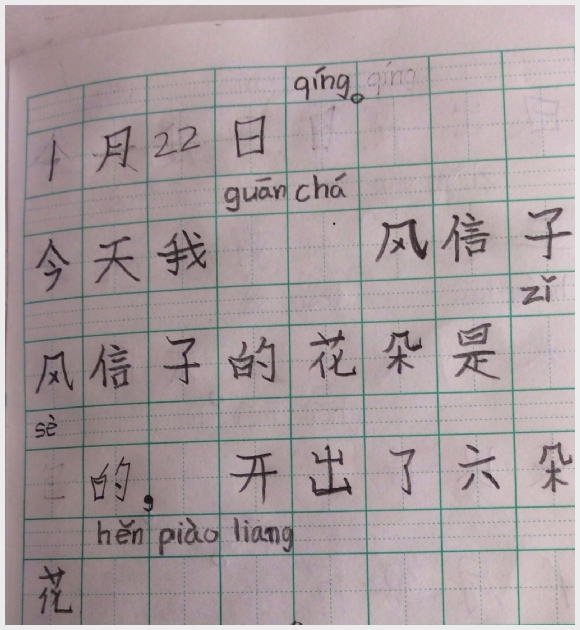 qíng。
1月22日
guān chá
今天我 风信子
zǐ
风信子的花朵是
sè
的， 开出了六朵
hěn piào liang
花